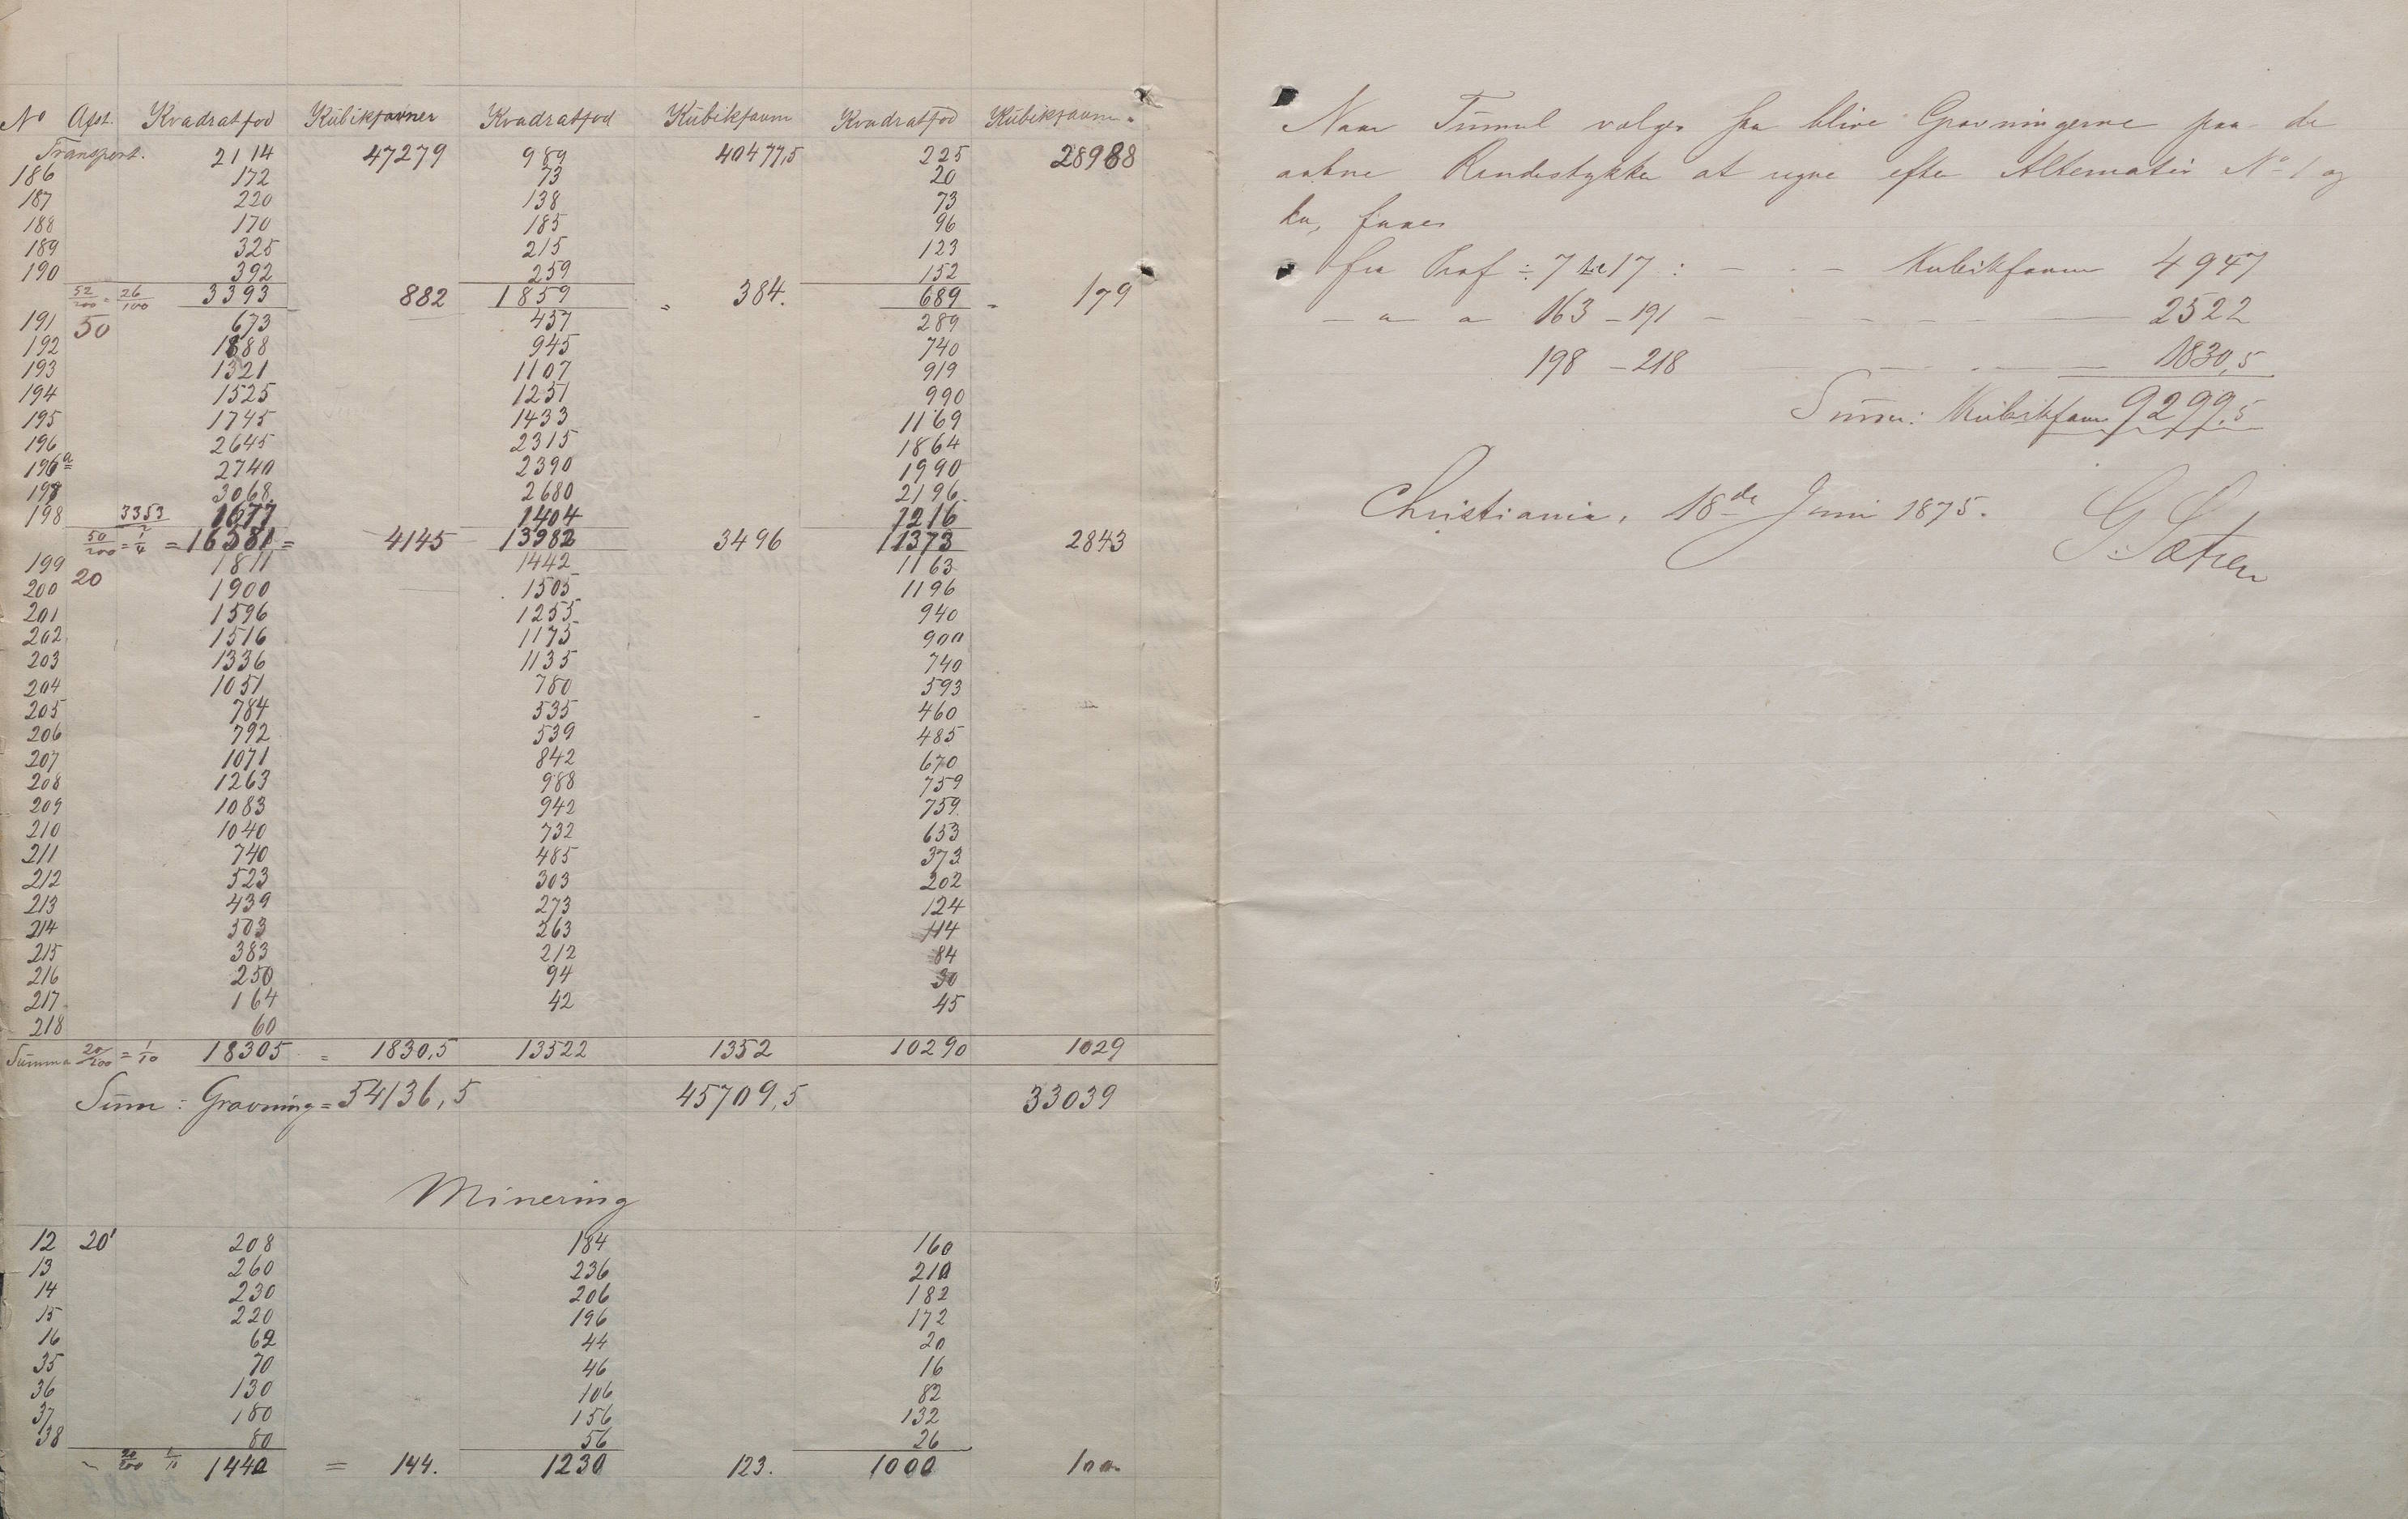 No Afst. Kvadratfod Kubikfavner Kvadratfod Kubikfavn Kvadratfod Kubikfavn.
Transport. 2114 47279 989 40477,5 225 28988
186 172 73 20
187 220 138 73
188 170 185 96
189 325 215 123
190 392 259 152
52/200 = 26/100 3393 882 1859 = 384. 689 = 179
191 50 673 457 289
192 1888 945 740
193 1321 1107 919
194 1525 1251 990
195 1745 1433 1169
196 2645 2315 1864
196a 2740 2390 1990
197 3068 2680 2196
198 3353/2 1677 1404 1216
50/200 = 1/4 = 16581 = 4145 13982 3496 11373 2843
199 20 1811 1442 1163
200 1900 1505 1196
201 1596 1255 940
202 1516 1175 900
203 1336 1135 740
204 1051 780 593
205 784 535 460
206 792 539 485
207 1071 842 670
208 1263 988 759
209 1083 942 759
210 1040 732 653
211 740 485 373
212 523 303 202
213 439 273 124
214 503 263 114
215 383 212 84
216 250 94 30
217 164 42 45
218 60
Summa 20/200 = 1/10 18305 = 1830,5 13522 1352 10290 1029
Sum: Gravning = 54136,5 45709,5 33039
Minering
12 20' 208 184 160
13 260 236 210
14 230 206 182
15 220 196 172
16 62 44 20
35 70 46 16
36 130 106 82
37 180 156 132
38 80 56 26
20/200 1/10 1440 = 144. 1230 123. 1000 100
Naar Tunnel vælges saa blive Gravningerne paa de
aabne Rendestykker at regne efter Alternativ No 1 og
fra Prof ÷ 7 til 17 : - - - Kubikfavn 4947
- " - " 163 - 191 - - - - 2522
198 - 218 - - - 1830,5
Summa: Kubikfavn 9299,5
Christiania, 18de Juni 1875.
G. Sætren